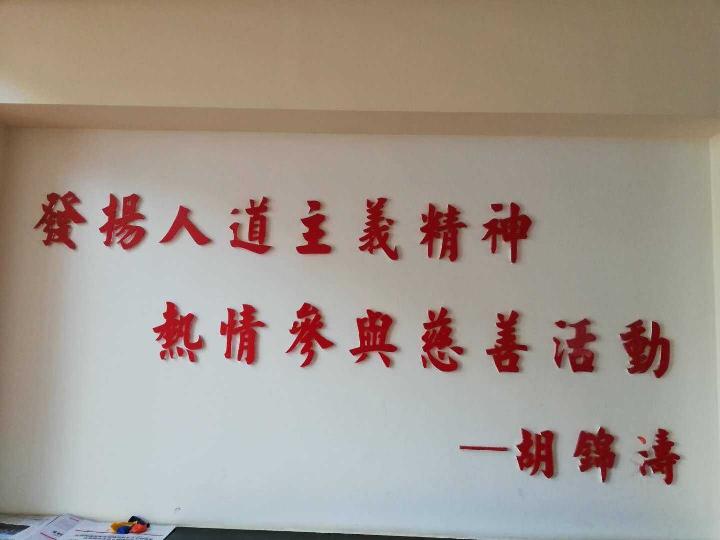 發揚人道主義精神
熱情參與慈善活動
—胡錦濤